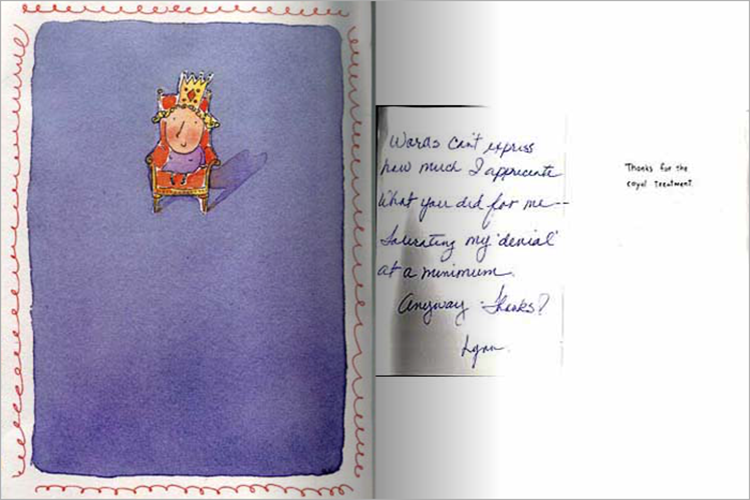 Words can't express
how much I appreciate
What you did for me--
tolerating my 'denial'
at a minimum.
Anyway - Thanks?
Lynn.
Thanks for the
royal treatment.